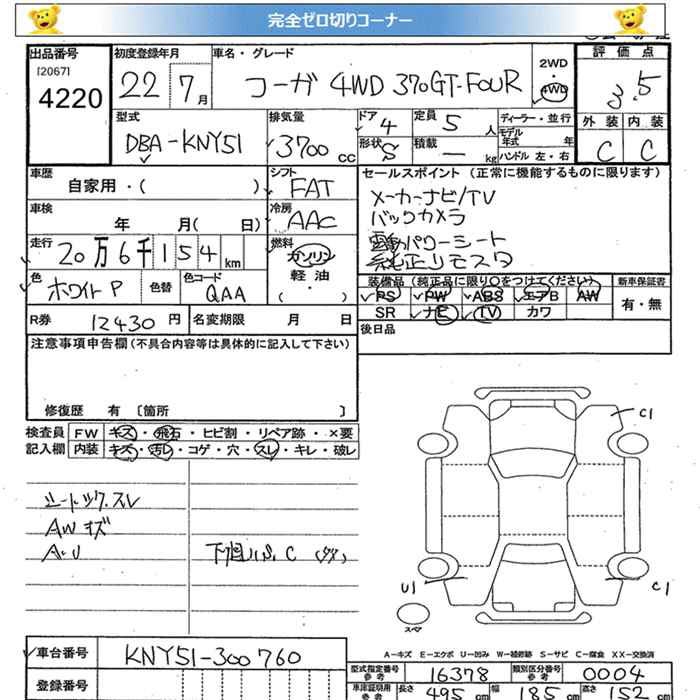 完全ゼロ切りコーナー
出品番号 初度登録年月 車名・グレード 2WD・4WD 評価点
[2067]
4220 22 7月 フーガ 4WD 370GT-FOUR 3.5
型式 排気量 ドア 定員 ディーラー・並行 外装 内装
DBA-KNY51 3700 CC 4 5 人 モデル年式 年 C C
形状 S 積載 ー kg ハンドル 左・右
車歴 シフト セールスポイント(正常に機能するものに限ります)
自家用・( ) FAT メーカーナビ/TV
車検 冷房 バックカメラ
年 月( 日) AAC 電動パワーシート
走行 燃料 純正リモスタ
20万6千154km ガソリン
軽油
( ・ )
色 色替 色コード 装備品(純正品に限り○をつけてください) 新車保証書
ホワイトP QAA PS PW ABS エアB AW 有・無
SR ナビ TV カワ
R券 12430円 名変期限 月 日 後日品
注意事項申告欄(不具合内容等は具体的に記入して下さい)
修復歴 有 〔箇所 〕
検査員 FW キズ・飛石・ヒビ割・リペア跡・×要
記入欄 内装 キズ・汚レ・コゲ・穴・スレ・キレ・破レ
C1
シートックスレ
AWキズ
A・U
U1 C1
スペア
A−キズ E−エクボ U−凹み W−補修跡 S−サビ C−腐食 XX−交換済
車台番号 KNY51-300760
登録番号
型式指定番号参考 16378 類別区分番号参考 0004
車庫証明用参考 長さ 495cm 幅 185cm 高さ 152cm